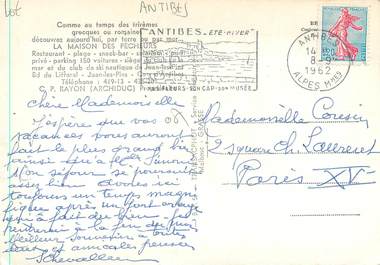 Lot
ANTIBES
Comme au temps des trirèmes
grecques ou romaines
découvertes aujourd'hui, par terre ou par mer
LA MAISON DES PECHEURS
Restaurant - plage - snack-bar - salon
privé - parking 150 voitures - siège du club de la
mer et du club de ski nautique de
Bd du Littoral - Juan-les-Pins - Cap d'Antibes
Téléphone : 419-13
C. P. RAYON (ARCHIDUC)
"ANTIBES - ÉTÉ-HIVER"
SES FLEURS - SON CAP - SON MUSÉE
ANTIBES
14
8 - 9
1962
ALPES Mmes
Chère Mademoiselle
J'espère que vos
vacances vous auront
fait le plus grand bien
ainsi que à
Mon séjour se poursuit
assez bien. Avons ici
toujours un temps magni
fique après un fort orage
qui a fait du bien. Je
rentrerai à la fin du mois
Meilleur souvenir à tous
et amicales pensées
Mademoiselle
2 square Ch. Laurent
Paris XV